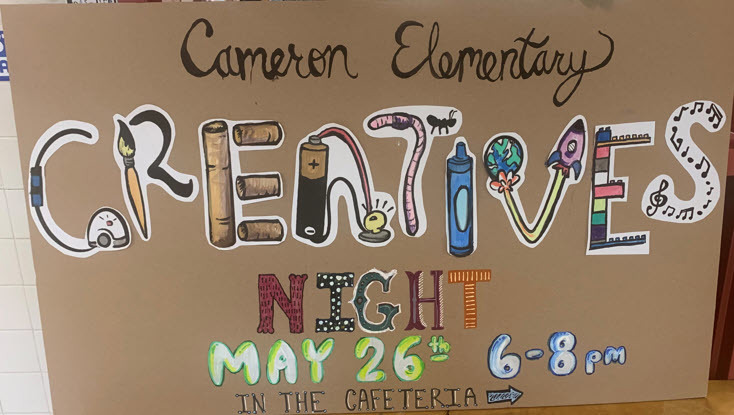 Cameron Elementary
CREATIVES
NIGHT
MAY 26th 6-8 PM
IN THE CAFETERIA